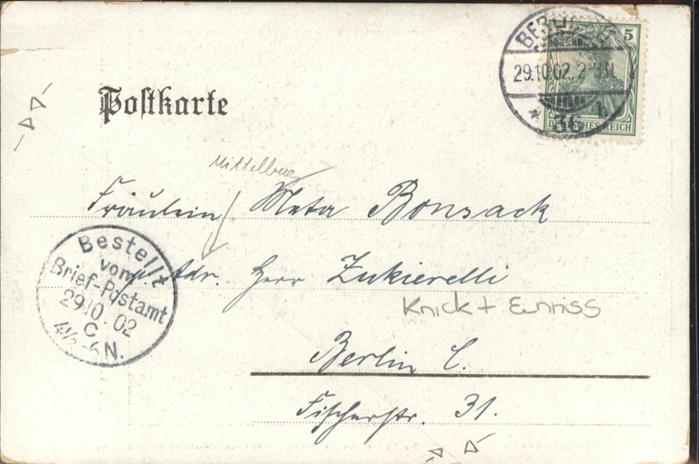 BERLIN
29.10.02. 2-3N.
* 36
5
DEUTSCHES REICH
Postkarte
Mittelbug
Fräulein Meta Bonsack
Adr. Herr Zukierelli
Knick + Einriss
Berlin C.
Fischerstr. 31.
Bestellt
vom
Brief-Postamt
29.10.02
C
4½-6N.